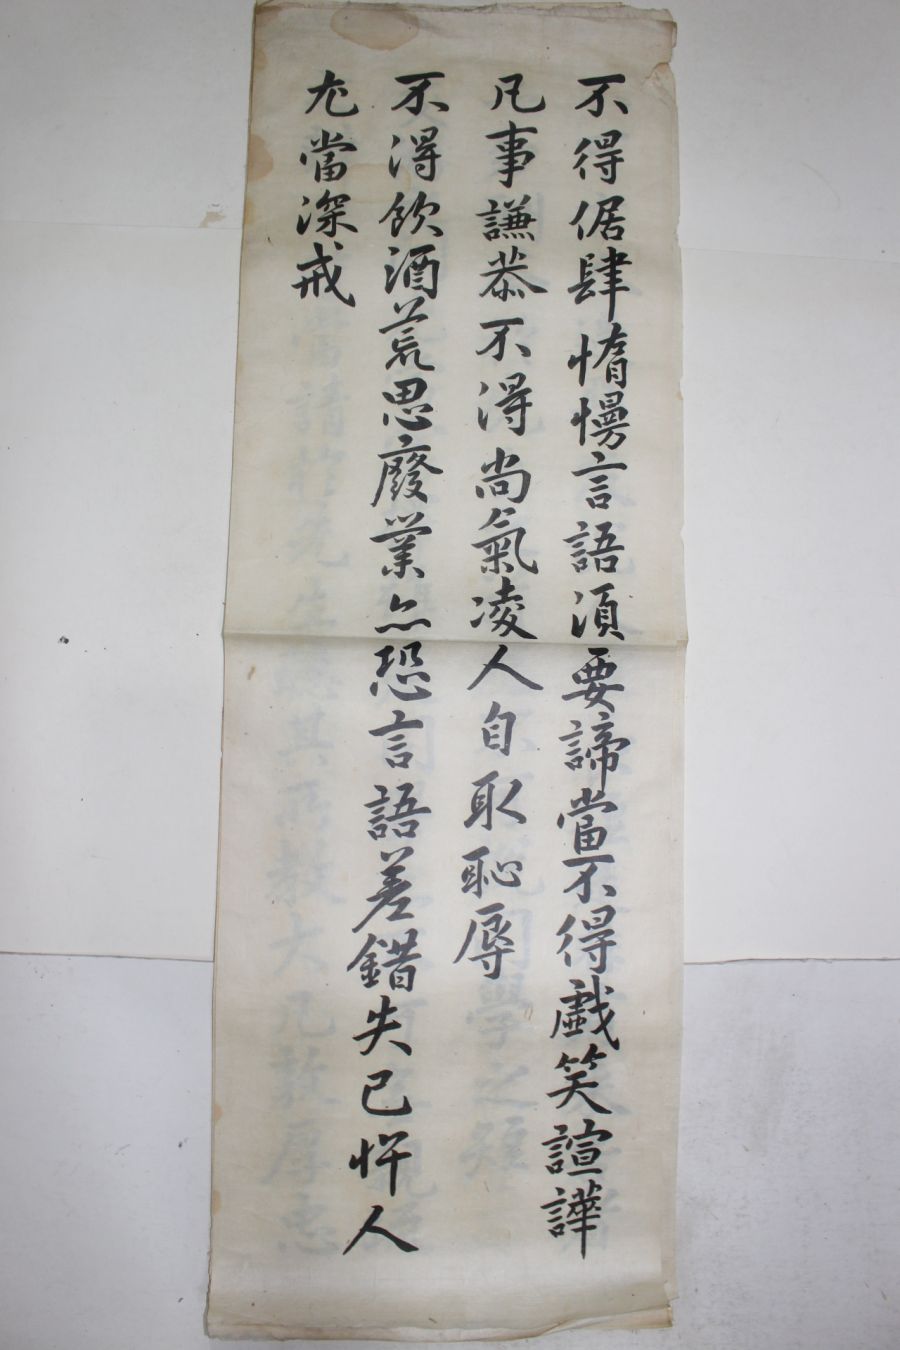 不得倨肆惰慢言語須要諦當不得戲笑諠譁
凡事謙恭不得尚氣凌人自取恥辱
不得飲酒荒思廢業亦恐言語差錯失己忤人
尤當深戒